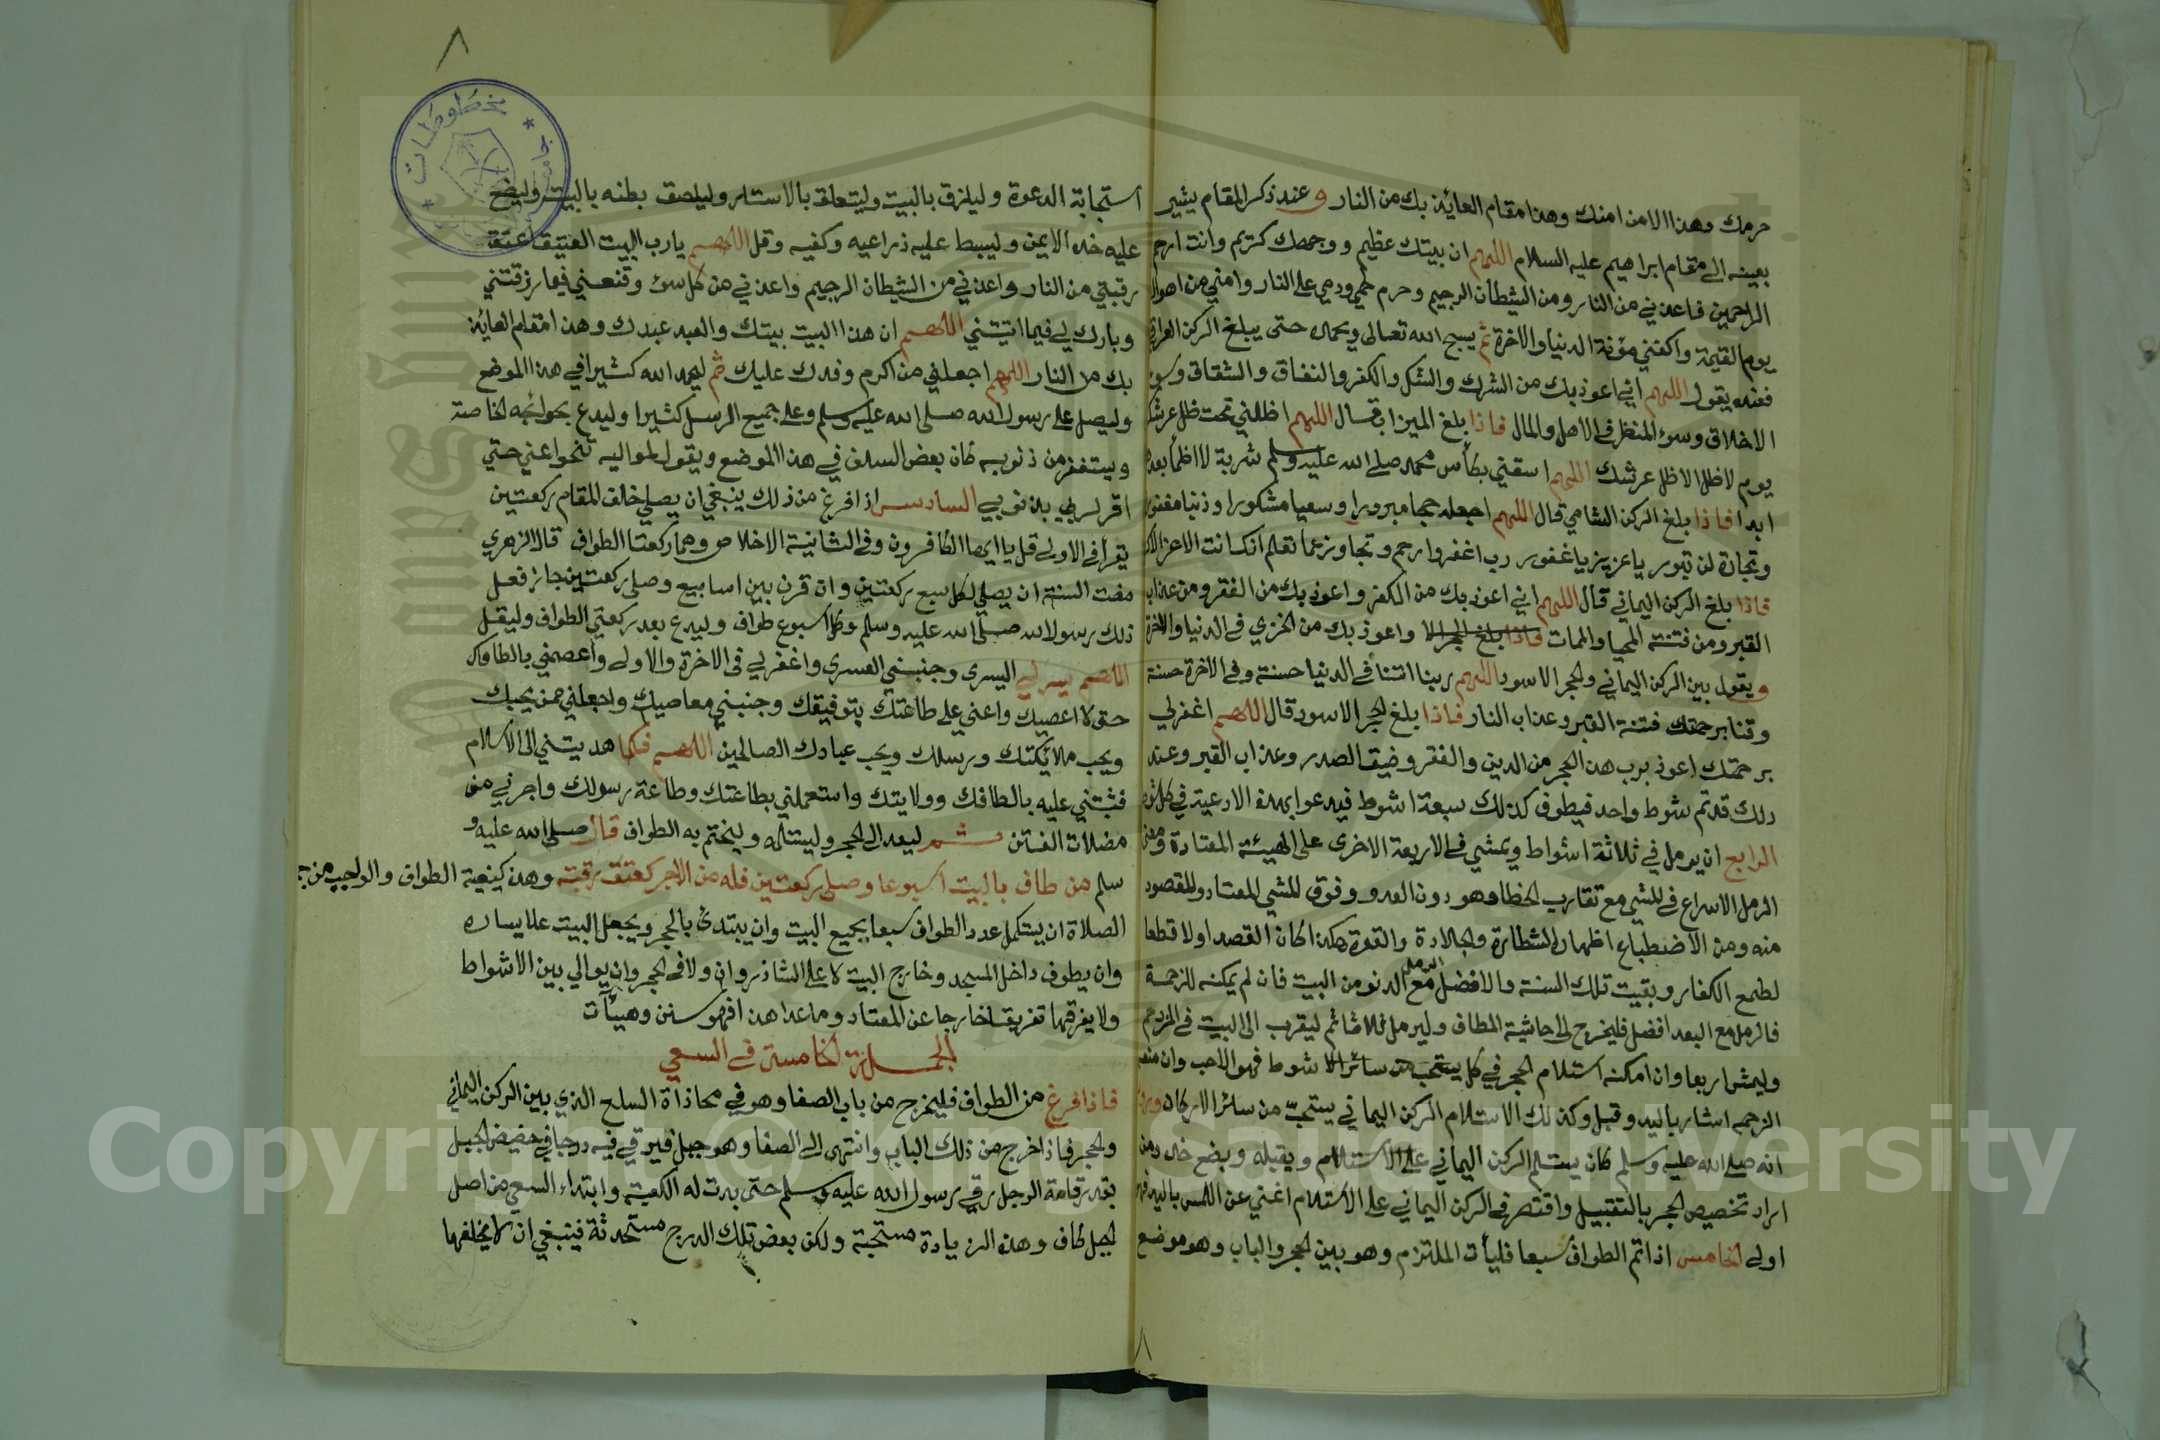 حرمك وهذا الامن امنك وهذا مقام العائذ بك من النار وعند ذكر المقام يشير
بعينه الى مقام ابراهيم عليه السلام اللهم ان بيتك عظيم ووجهك كريم وانت ارحم
الراحمين فاعذني من النار ومن الشيطان الرجيم وحرم لحمي ودمي على النار وامني من اهوال
يوم القيمة واكفني مؤنة الدنيا والاخرة ثم يسبح الله تعالى ويحمده حتى يبلغ الركن العراقي
فعنده يقول اللهم اني اعوذ بك من الشرك والشك والكفر والنفاق والشقاق وسوء
الاخلاق وسوء المنظر في الاهل والمال فاذا بلغ الميزاب قال اللهم اظلني تحت ظل عرشك
يوم لا ظل الا ظل عرشك اللهم اسقني بكأس محمد صلى الله عليه وسلم شربة لا اظمأ بعدها
ابدا فاذا بلغ الركن الشامي قال اللهم اجعله حجا مبرورا وسعيا مشكورا وذنبا مغفورا
وتجارة لن تبور يا عزيز يا غفور رب اغفر وارحم وتجاوز عما تعلم انك انت الاعز الاكرم
فاذا بلغ الركن اليماني قال اللهم اني اعوذ بك من الكفر واعوذ بك من الفقر ومن عذاب
القبر ومن فتنة المحيا والممات فاذا بلغ الحجر الا واعوذ بك من الخزي في الدنيا والاخرة
ويقول بين الركن اليماني والحجر الاسود اللهم ربنا اتنا في الدنيا حسنة وفي الاخرة حسنة
وقنا برحمتك فتنة القبر وعذاب النار فاذا بلغ الحجر الاسود قال اللهم اغفر لي
برحمتك اعوذ برب هذا الحجر من الدين والفقر وضيق الصدر وعذاب القبر وعند
ذلك قد تم شوط واحد فيطوف كذلك سبعة اشوط فيدعوا بهذه الادعية في كل شوط
الرابع ان يرمل في ثلاثة اشواط ويمشي في الاربعة الاخرى على الهيئة المعتادة ومعنى
الرمل الاسراع في المشي مع تقارب الخطا وهو دون العدو وفوق المشي المعتاد والمقصود
منه ومن الاضطباع اظهار الشطارة والجلادة والقوة هكذا كان القصد اولا قطعا
لطمع الكفار وبقيت تلك السنة والافضل الرمل مع الدنو من البيت فان لم يمكنه للزحمة
فالرمل مع البعد افضل فليخرج الى حاشية المطاف وليرمل ثلاثا ثم ليقرب الى البيت في المزدحم
وليمش اربعا وان امكنه استلام الحجر في كل يستحب من سائر الاشوط فهو الاحب وان منعه
الزحمه اشار باليد وقبل وكذلك الاستلام الركن اليماني يستحبّ من سائر الاركان وروي
انه صلى الله عليه وسلم كان يستلم الركن اليماني على الاستلام ويقبله ويضع خده ومن
اراد تخصيص الحجر بالتقبيل واقتصر في الركن اليماني على الاستلام اغني عن اللمس باليد فهو
اولى الخامس اذا تم الطواف سبعا فليأت الملتزم وهو بين الحجر والباب وهو موضع
٨
استجابة الدعوة وليلزق بالبيت وليتعلق بالاستار وليلصق بطنه بالبيت وليضع
عليه خده الايمن وليبسط عليه ذراعيه وكفيه وقل اللهم يا رب البيت العتيق اعتق
رقبتي من النار واعذني من الشيطان الرجيم واعذني من كل سوء وقنعني فيما رزقتني
وبارك لي فيما اتيتني اللهم ان هذا البيت بيتك والعبد عبدك وهذا مقام العائذ
بك من النار اللهم اجعلني من اكرم وفدك عليك ثم ليحمد الله كثيرا في هذا الموضع
وليصل على رسول الله صلى الله عليه وسلم وعلى جميع الرسل كثيرا وليدع بحوائجه الخاصة
ويستغفر من ذنوبه كان بعض السلف في هذا الموضع ويقول لمواليه تنحوا عني حتى
اقر لربي بذنوبي السادس اذا فرغ من ذلك ينبغي ان يصلي خلف المقام ركعتين
يقرأ في الاولى قل يا ايها الكافرون وفي الثانية الاخلاص وهما ركعتا الطواف قال الزهري
مضت السنة ان يصلي لكل سبع ركعتين وان قرن بين اسابيع وصلى ركعتين جاز فعل
ذلك رسول الله صلى الله عليه وسلم وكل اسبوع طواف وليدع بعد ركعتي الطواف وليقل
اللهم يسر لي اليسرى وجنبني العسرى واغفر لي في الاخرة والاولى واعصمني بالطافك
حتى لا اعصيك واعني على طاعتك بتوفيقك وجنبني معاصيك واجعلني ممن يحبك
ويحب ملائكتك ورسلك ويحب عبادك الصالحين اللهم فكما هديتني الى الاسلام
فثبتني عليه بالطافك وولايتك واستعملني بطاعتك وطاعة رسولك واجرني من
مضلات الفتن ثم ليعد الى الحجر وليستلمه وليختم به الطواف قال صلى الله عليه و
سلم من طاف بالبيت اسبوعا وصلى ركعتين فله من الاجر كعتق رقبته وهذه كيفية الطواف والواجب من
الصلاة ان يستكمل عدد الطواف سبعا بجميع البيت وان يبتدئ بالحجر ويجعل البيت على يساره
وان يطوف داخل المسجد وخارج البيت لا على الشاذروان ولا في الحجر وان يوالي بين الاشواط
ولا يفرقها تفريقا خارجا عن المعتاد وما عدا هذا فهو سنن وهيئآت
الجملة الخامسة في السعي
فاذا فرغ من الطواف فليخرج من باب الصفا وهو في محاذاة السلع الذي بين الركن اليماني
والحجر فاذا خرج من ذلك الباب وانتهى الى الصفا وهو جبل فيرقى فيه درجا في حضيض الجبل
بقدر قامة الرجل رقي رسول الله عليه وسلم حتى بدت له الكعبة وابتداء السعي من اصل
الجبل كاف وهذه الزيادة مستحبة ولكن بعض تلك الدرج مستحدثة فينبغي ان لا يخلفها
٨
مخطوطات
Copyright © King Saud University